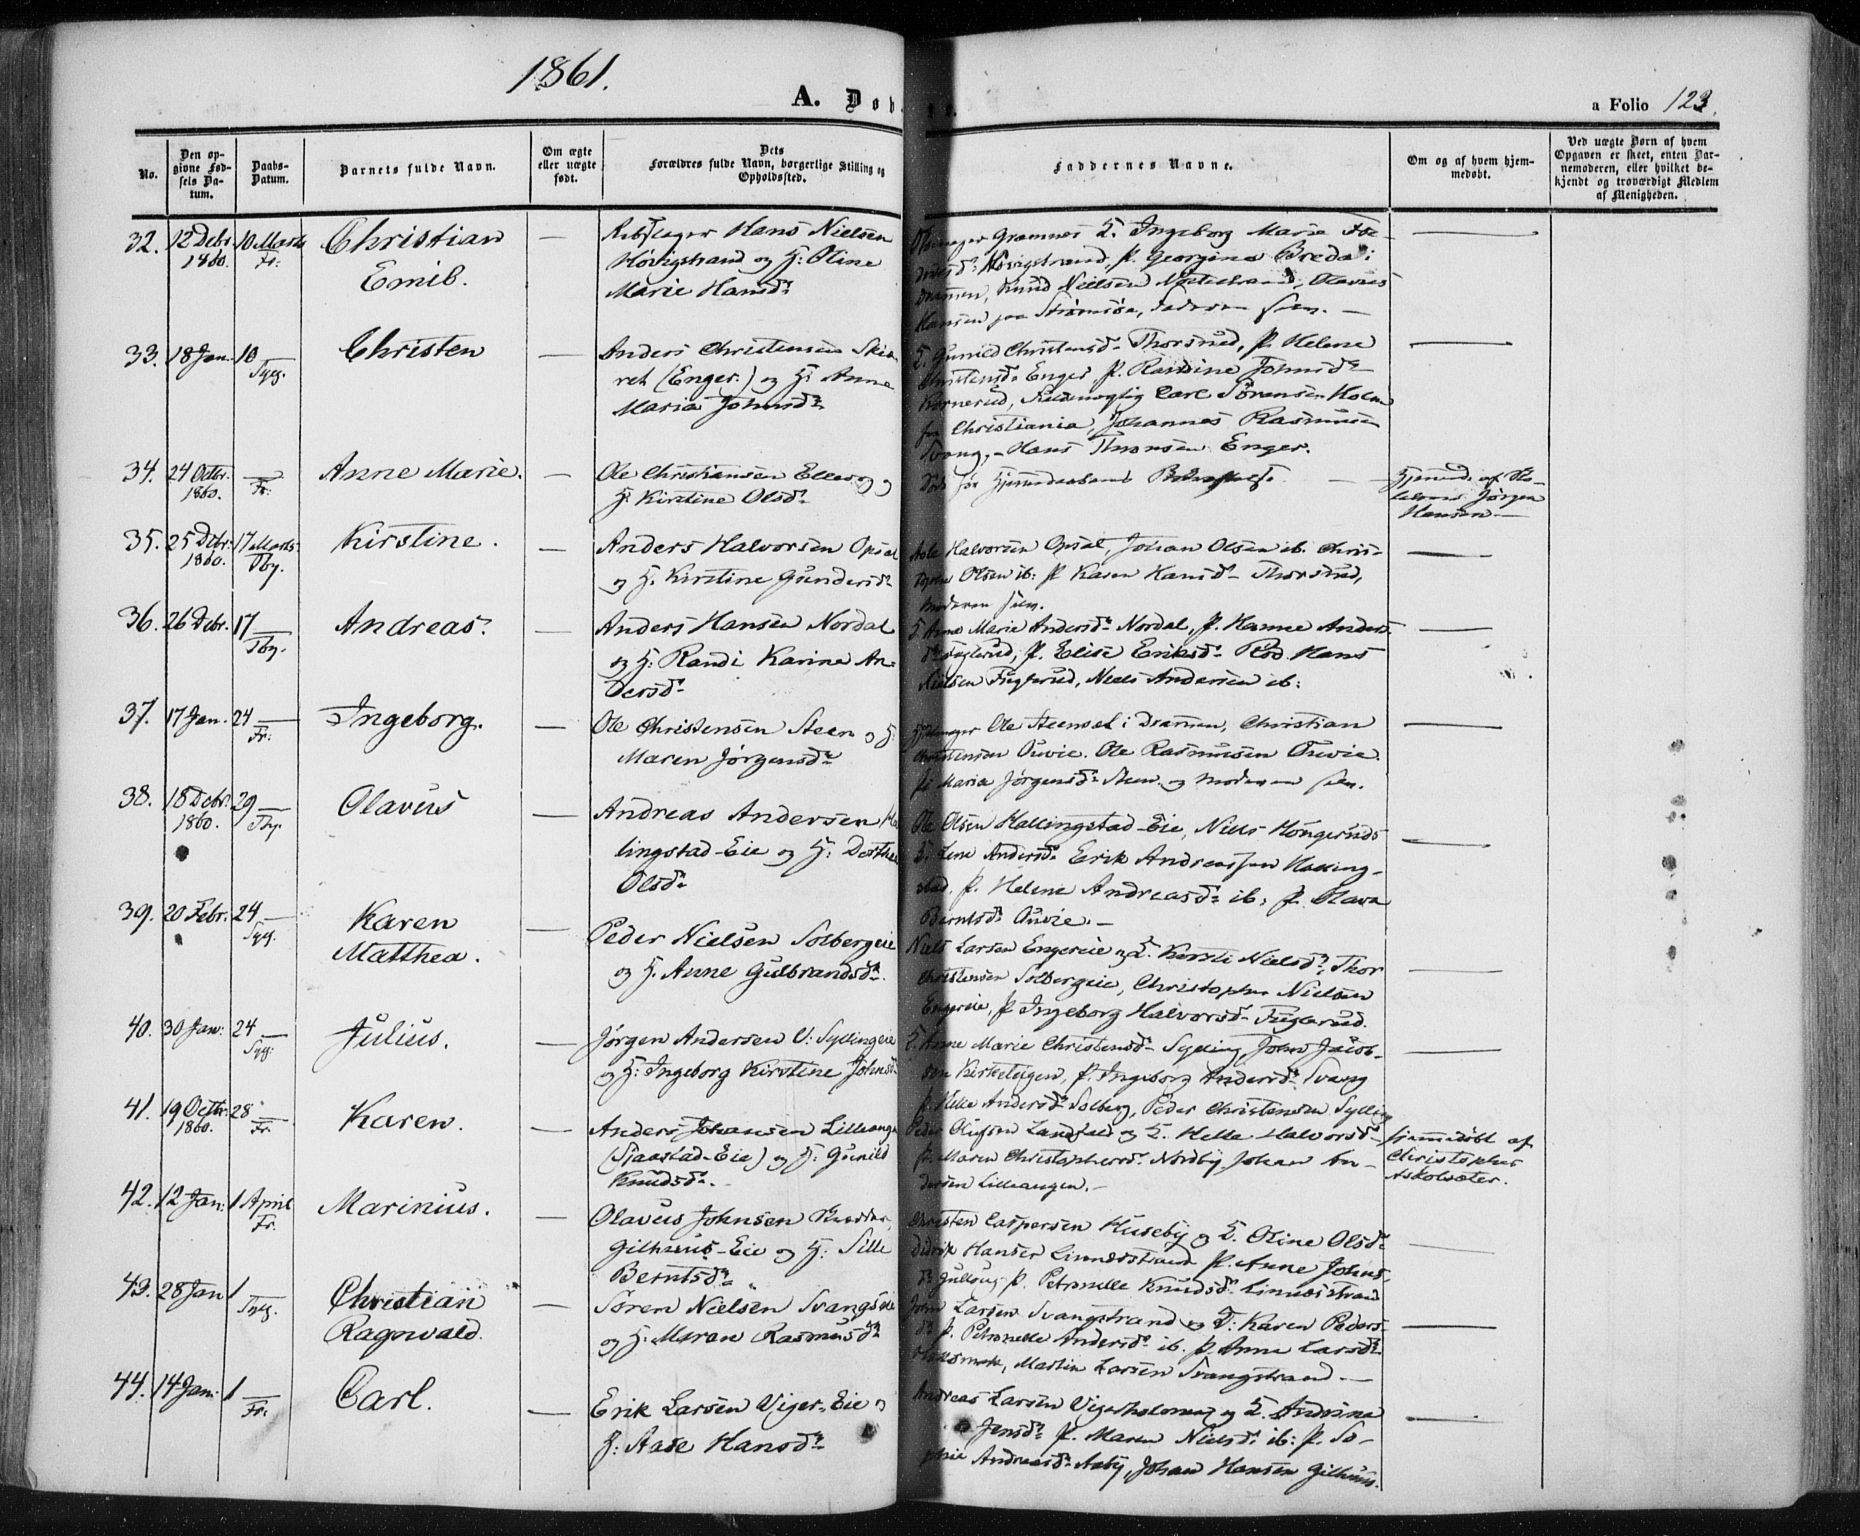 1861.
A. Døb
a Folio 123.
No.
Den opgivne Fødsels Datum.
Daabs-Datum.
Barnets fulde Navn.
Om ægte eller uægte født.
Dets Forældres fulde Navn, borgerlige Stilling og Opholdssted.
Faddernes Navne.
Om og af hvem hjemmedøbt.
Ved uægte Børn af hvem Opgaven er skeet, enten Barnemoderen, eller hvilket bekjendt og troværdigt Medlem af Menigheden.
32. 12 Debr. 1860. 10 Marts Fr: Christian Emil. —
Hans Nielsen
og H: Oline
Marie Hansd:
Gramnes H. Ingeborg Marie
P. Georgine Breda i
Drammen, Knud Nielsen Olavus
Hansen paa Strømsøe, Faderen selv. —
33. 18 Jan. 10 — Syll. Christen —
Anders Christensen
(Enger.) og H: Anne
Maria Johnsd:
H. Gunild Christensd: Thorsrud, P. Helene
Christensd: Enger P. Randine Johnsd:
Carl Sørensen Holm
fra Christiania, Johannes Rasmussen
Svang, Hans Thomsen Enger.
34. 24 Octbr. 1860. — Fr: Anne Marie. —
Ole Christiansen og
H: Kirstine Olsd:
Død før
Hjemd: af
Jørgen
Hansen —
35. 25 Debr. 1860. 17 Marts Tby. Kirstine. —
Anders Halvorsen Opsal
og H. Kirstine Gundersd:
Halvorsen Opsal, Johan Olsen ib.
Olsen ib: P Karen Hansd: Thorsrud,
Moderen selv.
36. 26 Debr. 17 — Tby. Andreas. —
Anders Hansen Nordal
og H: Randi Karine An-
dersd:
H. Anne Marie Andersd: Nordal, P. Hanne Anders
d: Fuglerud, P. Elise Eriksd: Rød Hans
Nielsen Fuglerud, Niels Andersen ib:
37. 17 Jan. 24 — Fr: Ingeborg. —
Ole Christensen Steen og H:
Maren Jørgensd:
Ole Steensæt i Drammen, Christian
Christensen Ouvie. Ole Rasmussen Ouvie.
P. Maria Jørgensd: Steen og Moderen selv.
38. 18 Debr. 1860. 29 — Tby. Olavus —
Andreas Andersen Hal
lingstad-Eie og H: Dorthe
Olsd:
Ole Olsen Hallingstad-Eie, Niels Hongerud
H. Lene Andersd: Erik Andreassen Halling-
stad, P. Helene Andreasd: ib: P. Olava
Berntsd: Ouvie. —
39. 20 Febr. 24 — Syll. Karen Matthea. —
Peder Nielsen Solbergeie
og H. Anne Gulbrandsd:
Niels Larsen Engereie og H. Kirsti Nielsd:, Thor
Christensen Solbergeie, Christopher Nielsen
Engereie, P Ingeborg Halvorsd: Fuglerud.
40. 30 Jan: 24 — Syll: Julius. —
Jørgen Andersen V: Syllingeie
og H: Ingeborg Kirstine Johnsd:
H. Anne Marie Christensd: Sylling, John Jacob-
sen Kirketeigen, P. Ingeborg Andersd: Svang
P. Helle Andersd: Solberg, Peder Christensen Sylling
41. 19 Octbr. 1860. 28 — Fr: Karen. —
Anders Johansen Lilleangen
(Sjaastad-Eie) og H: Gunild
Knudsd:
Peder Olufsen Landfald og H. Helle Halvorsd:
P. Maren Christophersd: Nordby, Johan An-
dersen Lilleangen. —
Hjemmedøbt af
Christopher
Askolsæter.
42. 12 Jan: 1 April Fr. Marinius. —
Olavus Johnsen
Gilhuus-Eie og H: Sille
Berntsd:
Christen Caspersen Huseby og H. Oline Olsd:
Didrik Hansen Linnesstrand P. Anne Johns-
d: Gullaug P. Petronelle Knudsd: Linnesstrand
43. 28 Jan 1 — Syll. Christian Ragnvald. —
Søren Nielsen Svangseie
og H. Maren Rasmusd:
John Larsen Svangstrand og H: Karen Peders-
d: P. Petronelle Andersd: ib. P. Anne Larsd:
Martin Larsen Svangstrand —
44. 14 Jan: 1 — Fr: Carl. —
Erik Larsen Viger-Eie og
H: Aase Hansd:
Andreas Larsen og H. Andrine
Jensd: P. Maren Nielsd: ib: P. So-
phie Andreasd: Aaby, Johan Hansen Gilhuus.